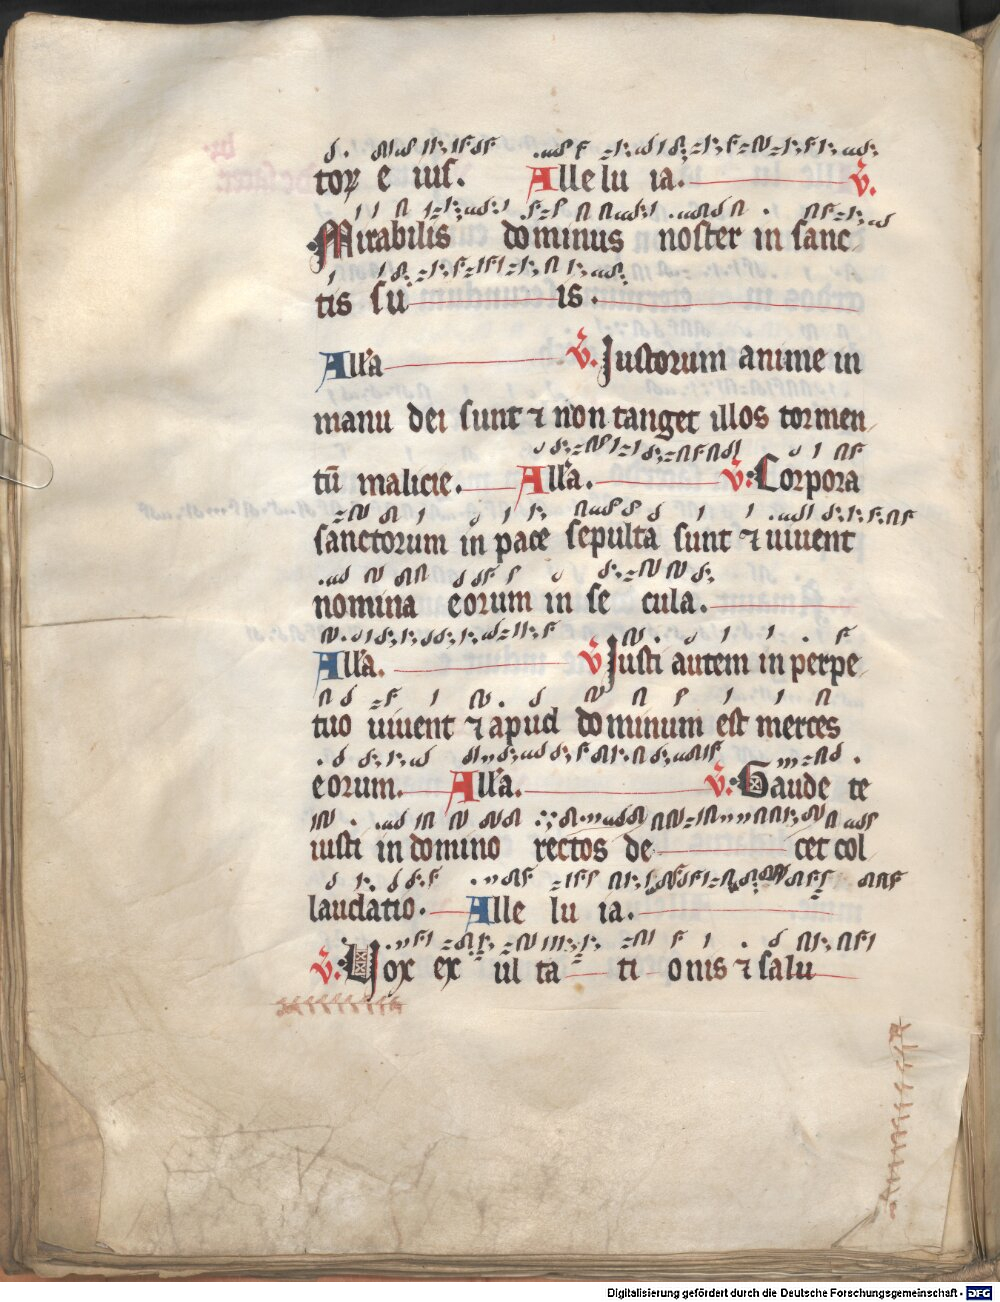 toꝝ e iuſ. Allelu ia. ℣.
Mirabilis dominus noster in sanc
tis su is.
All'a ℣. Justorum anime in
manu dei sunt ⁊ non tanget illos tormen
tū malicie. All'a. ℣. Corpora
sanctorum in pace sepulta sunt ⁊ uiuent
nomina eorum in se cula.
All'a. ℣ Justi autem in perpe
tuo uiuent ⁊ apud dominum est merces
eorum. All'a. ℣. Gaude te
iusti in domino rectos de cet col
laudatio. Alle lu ia.
℣. Vox ex ul ta ti onis ⁊ salu
Digitalisierung gefördert durch die Deutsche Forschungsgemeinschaft - DFG